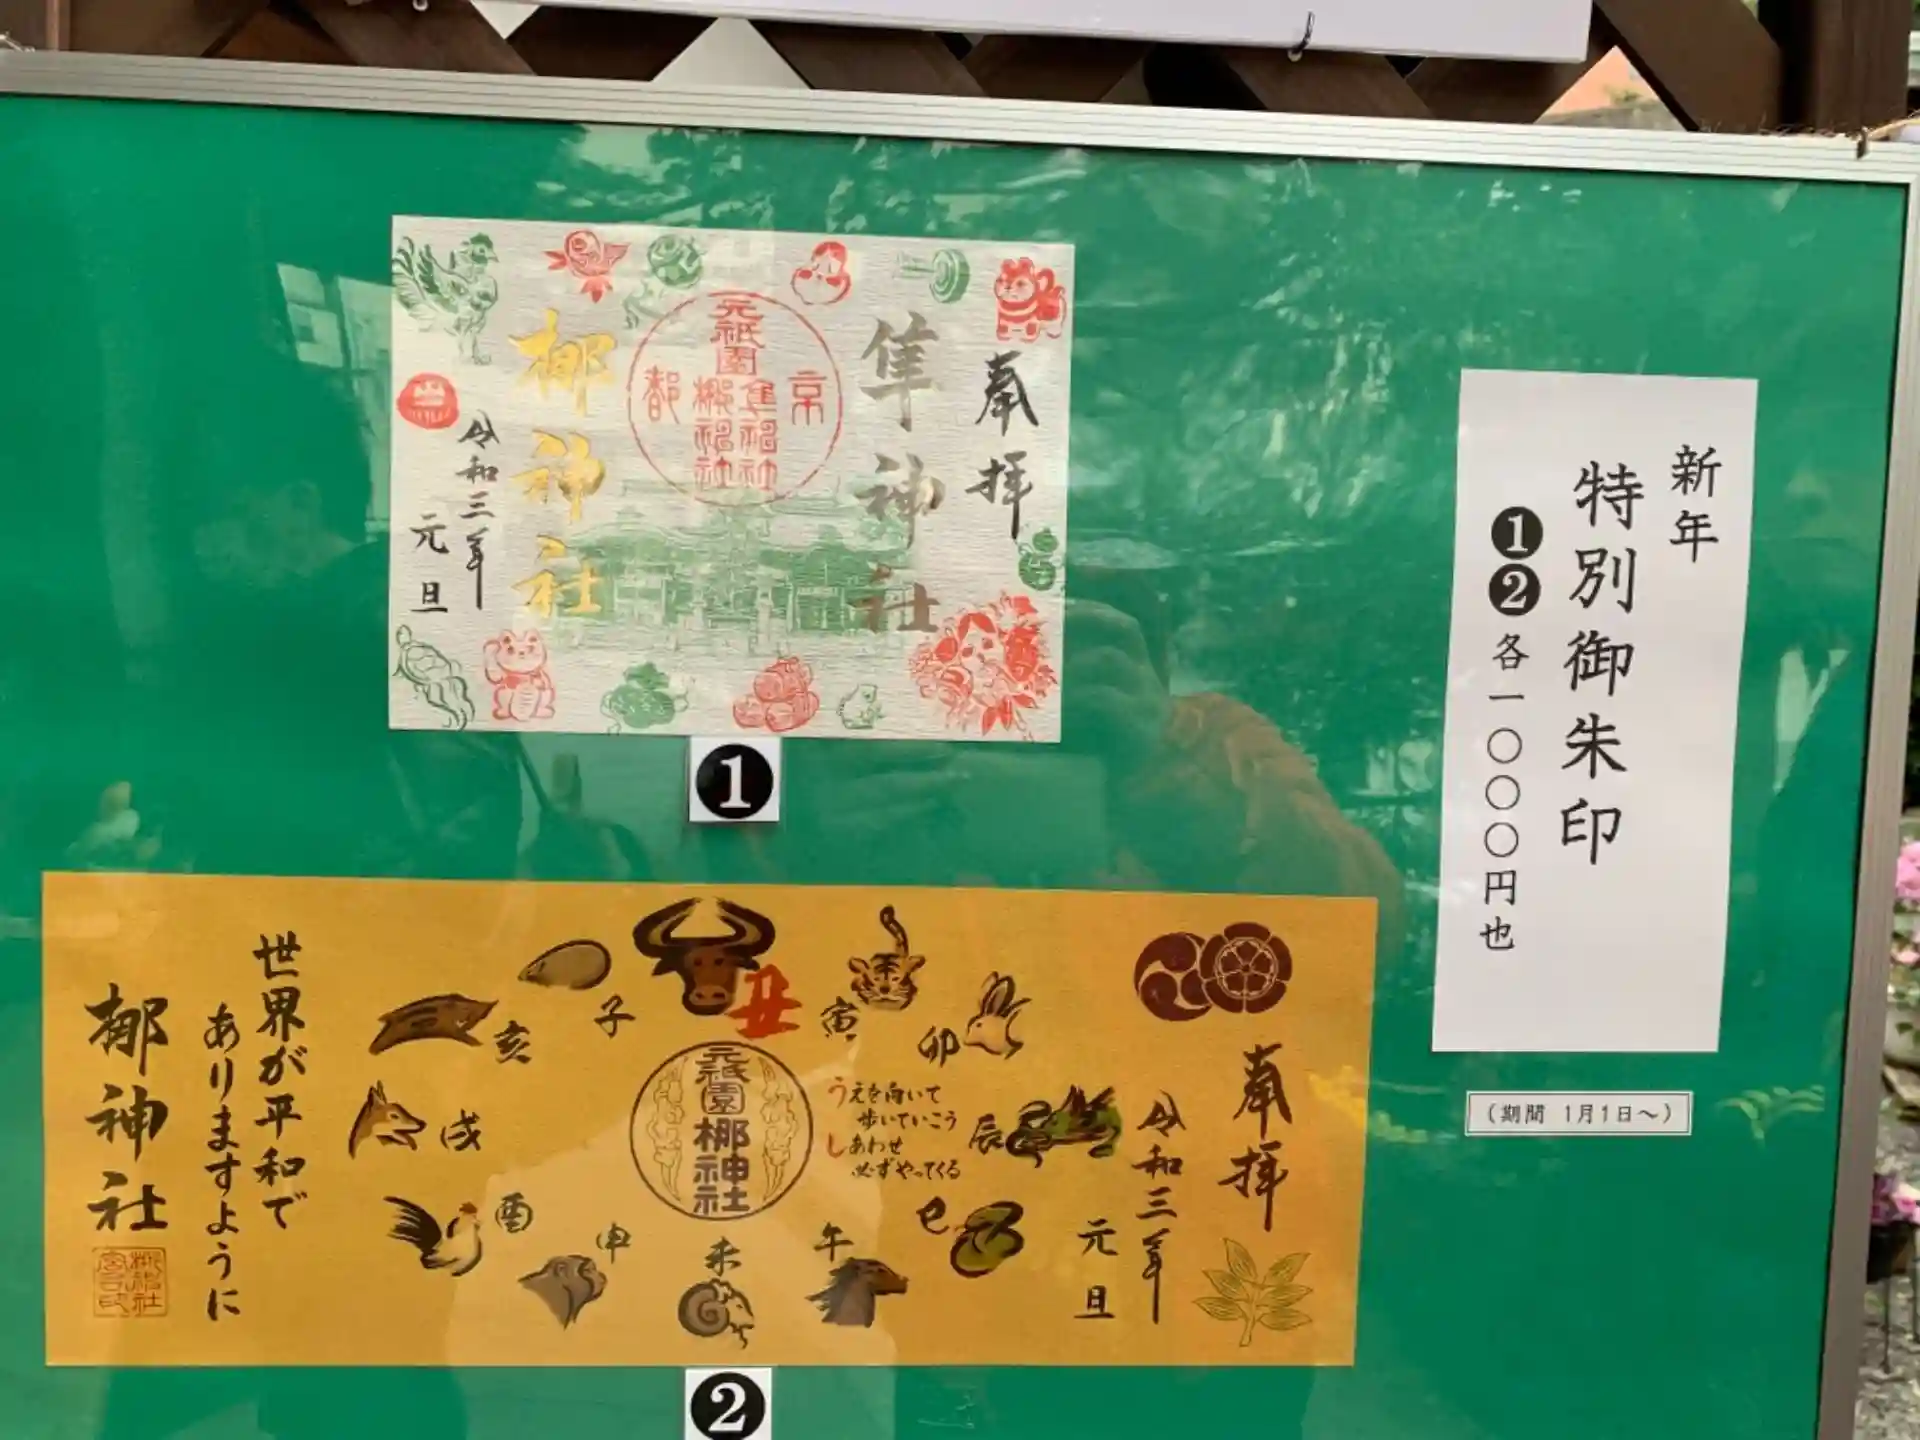 新年
特別御朱印
❶❷各一〇〇〇円也
（期間 1月1日～）
奉拝
隼神社
元祇園
隼神社
梛神社
京
都
梛神社
令和三年
元旦
❶
奉拝
令和三年
元旦
丑
寅
卯
辰
巳
午
未
申
酉
戌
亥
子
うえを向いて
歩いていこう
しあわせ
必ずやってくる
元祇園
梛神社
世界が平和で
ありますように
梛神社
❷